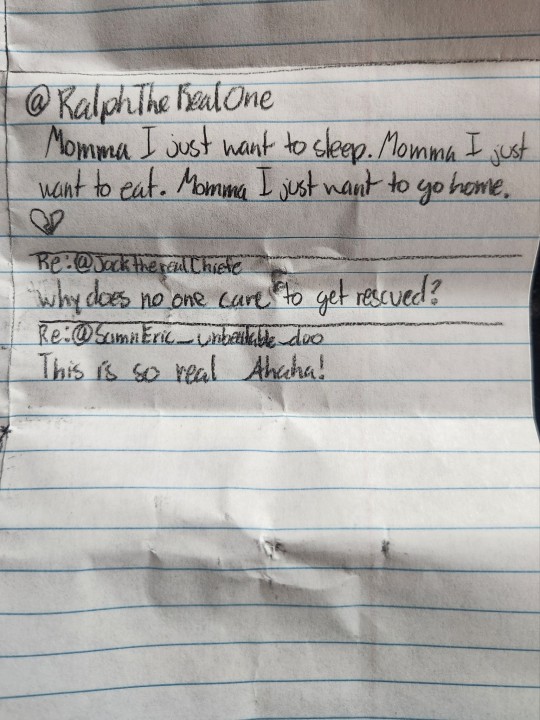 @RalphTheRealOne
Momma I just want to sleep. Momma I just
want to eat. Momma I just want to go home.
Re:@JacktherealChiefe
Why does no one care to get rescued?
Re:@SamnEric_unbeatable_duo
This is so real Ahaha!